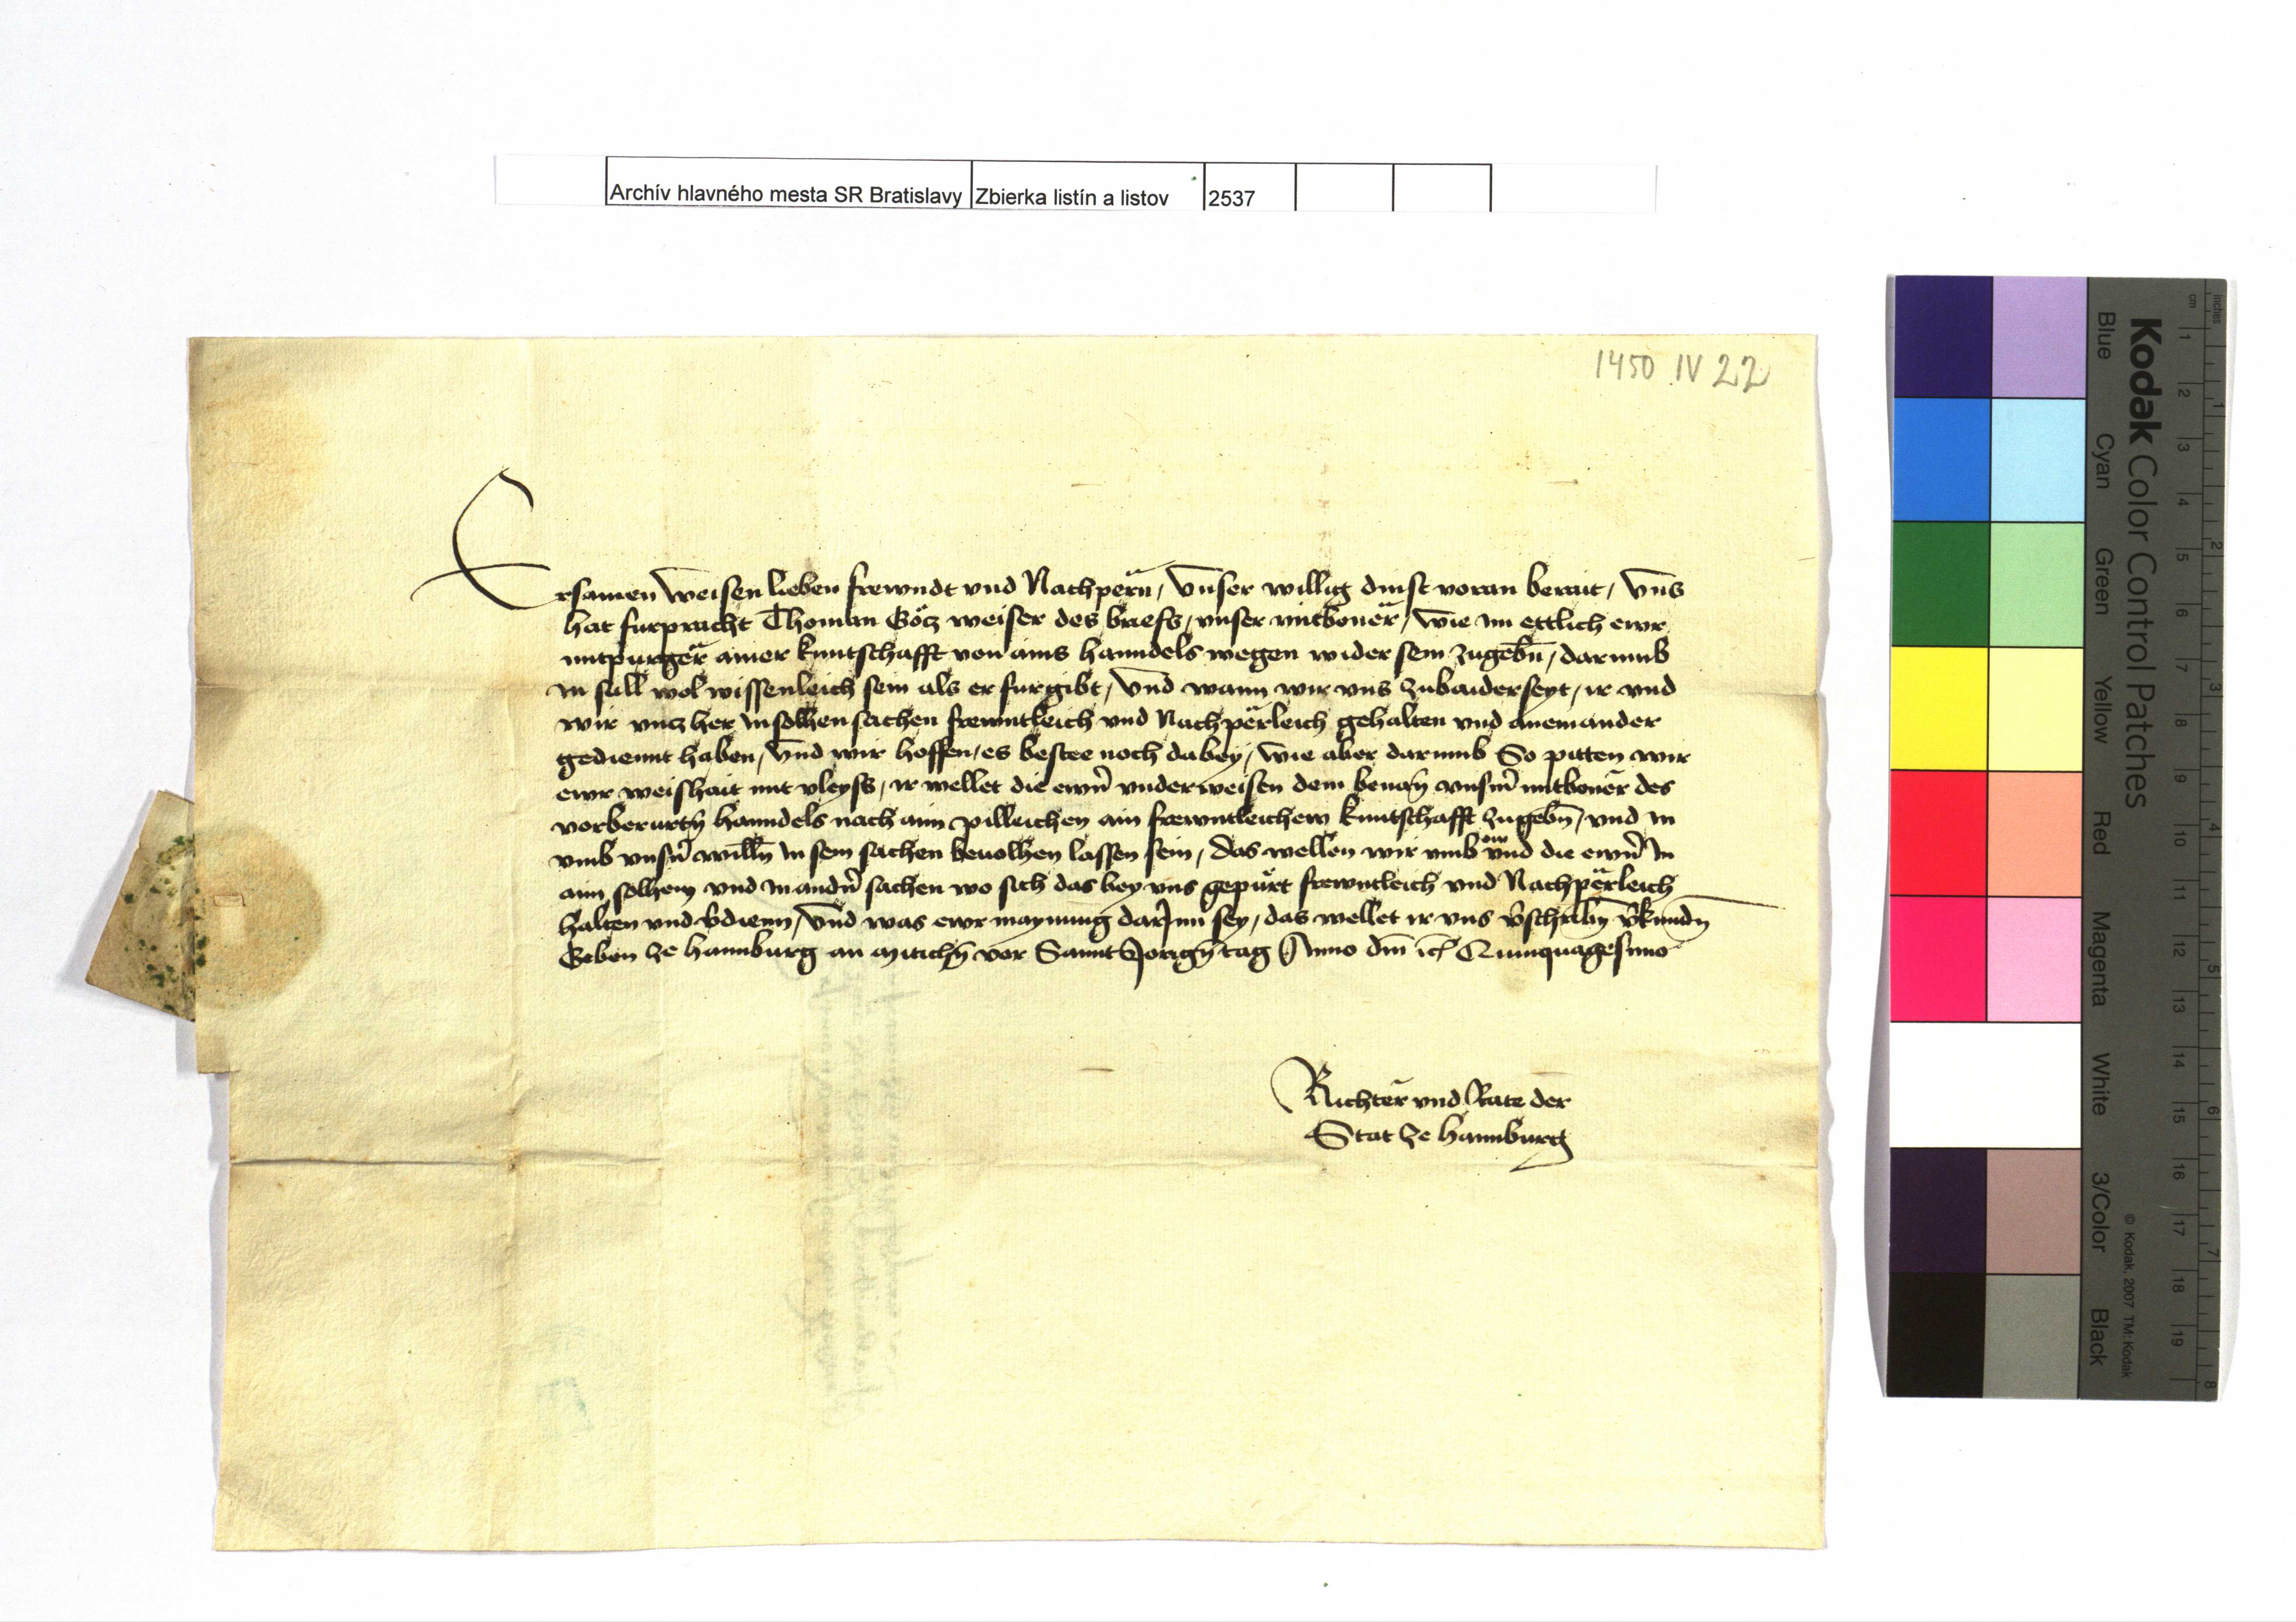 Archív hlavného mesta SR Bratislavy Zbierka listín a listov 2537
1450 IV 22
Ersamen weisen lieben frewndt vnd Nachpern, Vnser willig dinst voran berait, Vns
hat furpracht Thoman Göcz weiser des briefs, vnser mitboner, wie im ettlich ewr
mitpurger ainer kuntschafft von ains hanndels wegen wider sein zugebn̄, darumb
in sull wol wissenleich sein als er furgibt, Vnd wann wir vns zubaiderseyt, ir vnd
wir vncz her In solhen sachen frewntleich vnd Nachperleich gehalten vnd aneinander
gediennt haben, Vnd wir hoffen, es bestee noch dabey, wie aber darumb So pitten wir
ewr weishait mit vleyss, ir wellet die ewrn̄ vnderweisen dem benan̄ vnsm̄ mitboner des
vorberurtn̄ hanndels nach aim pilleichen ain frewntleichew kuntschafft zugebn̄, vnd in
vmb vnsn̄ willn̄ In sein sachen beuolhen lassen sein, das wellen wir vmb ew vnd die ewrn̄ In
aim solhem vnd In andn̄ sachen wo sich das bey vns gepürt frewntleich vnd Nachperleich
halten vnd v̄dienn, Vnd was ewr maynung darJnn sey, das wellet ir vns v̄schribn̄ v̄kundn̄
Geben ze hamburg an mitichn̄ vor Sannt Jorign̄ tag Anno dm̄ ic̄ Quinquagesimo
Richter vnd Rate der
Stat ze hamburg
Kodak Color Control Patches
Blue Cyan Green Yellow Red Magenta White 3/Color Black
© Kodak, 2007 TM: Kodak
inches 1 2 3 4 5 6 7 8
cm 1 2 3 4 5 6 7 8 9 10 11 12 13 14 15 16 17 18 19